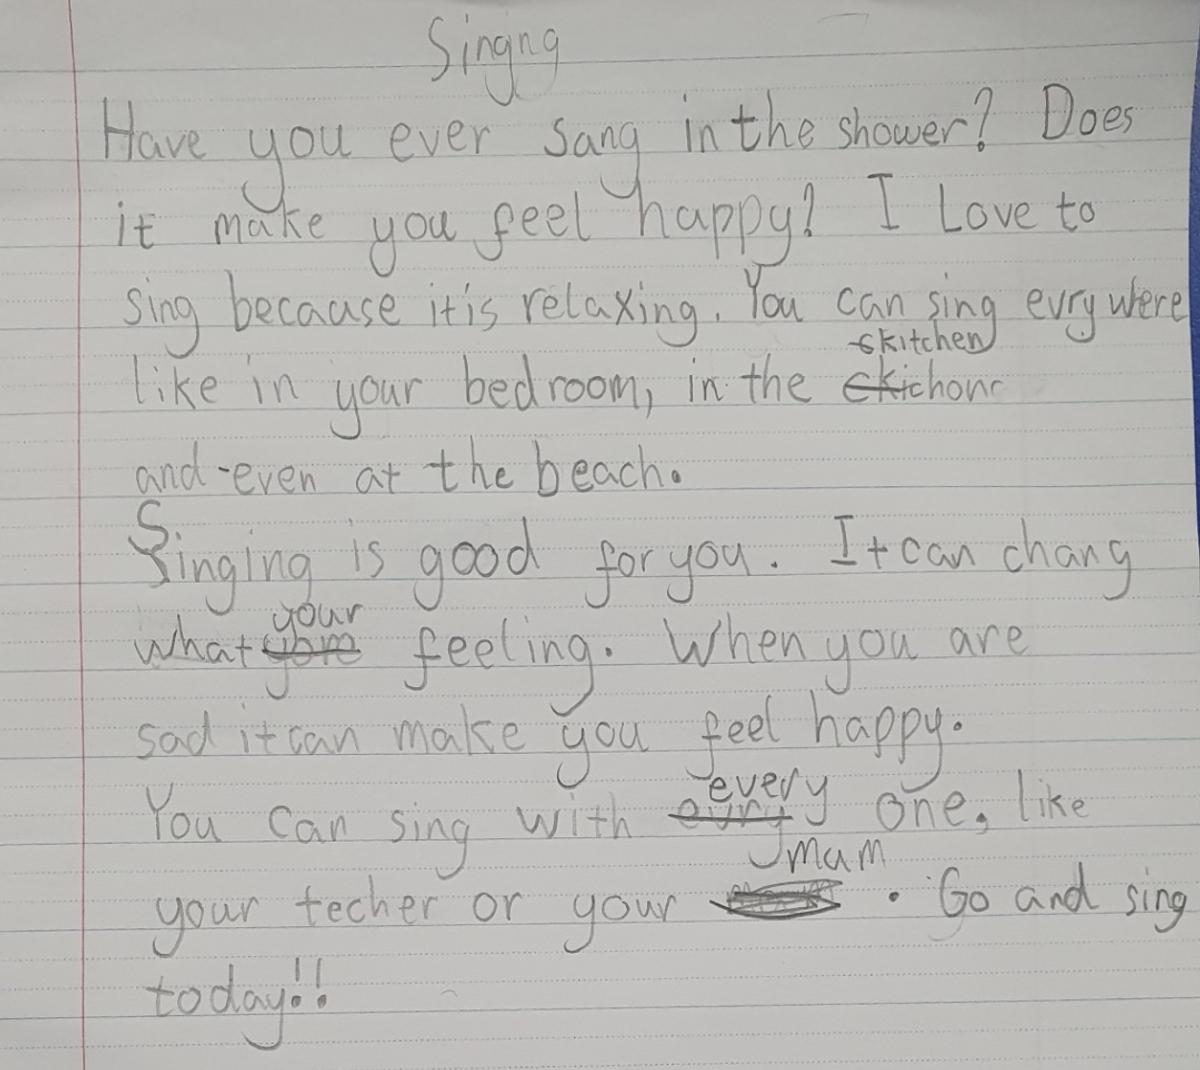 Singng
Have you ever sang in the shower? Does
it make you feel happy? I Love to
sing because it is relaxing. You can sing evry where
kitchen
like in your bedroom, in the
and even at the beach.
Singing is good for you. It can chang
your
what feeling. When you are
sad it can make you feel happy.
every
You can sing with evry one, like
mum
your techer or your . Go and sing
today!!